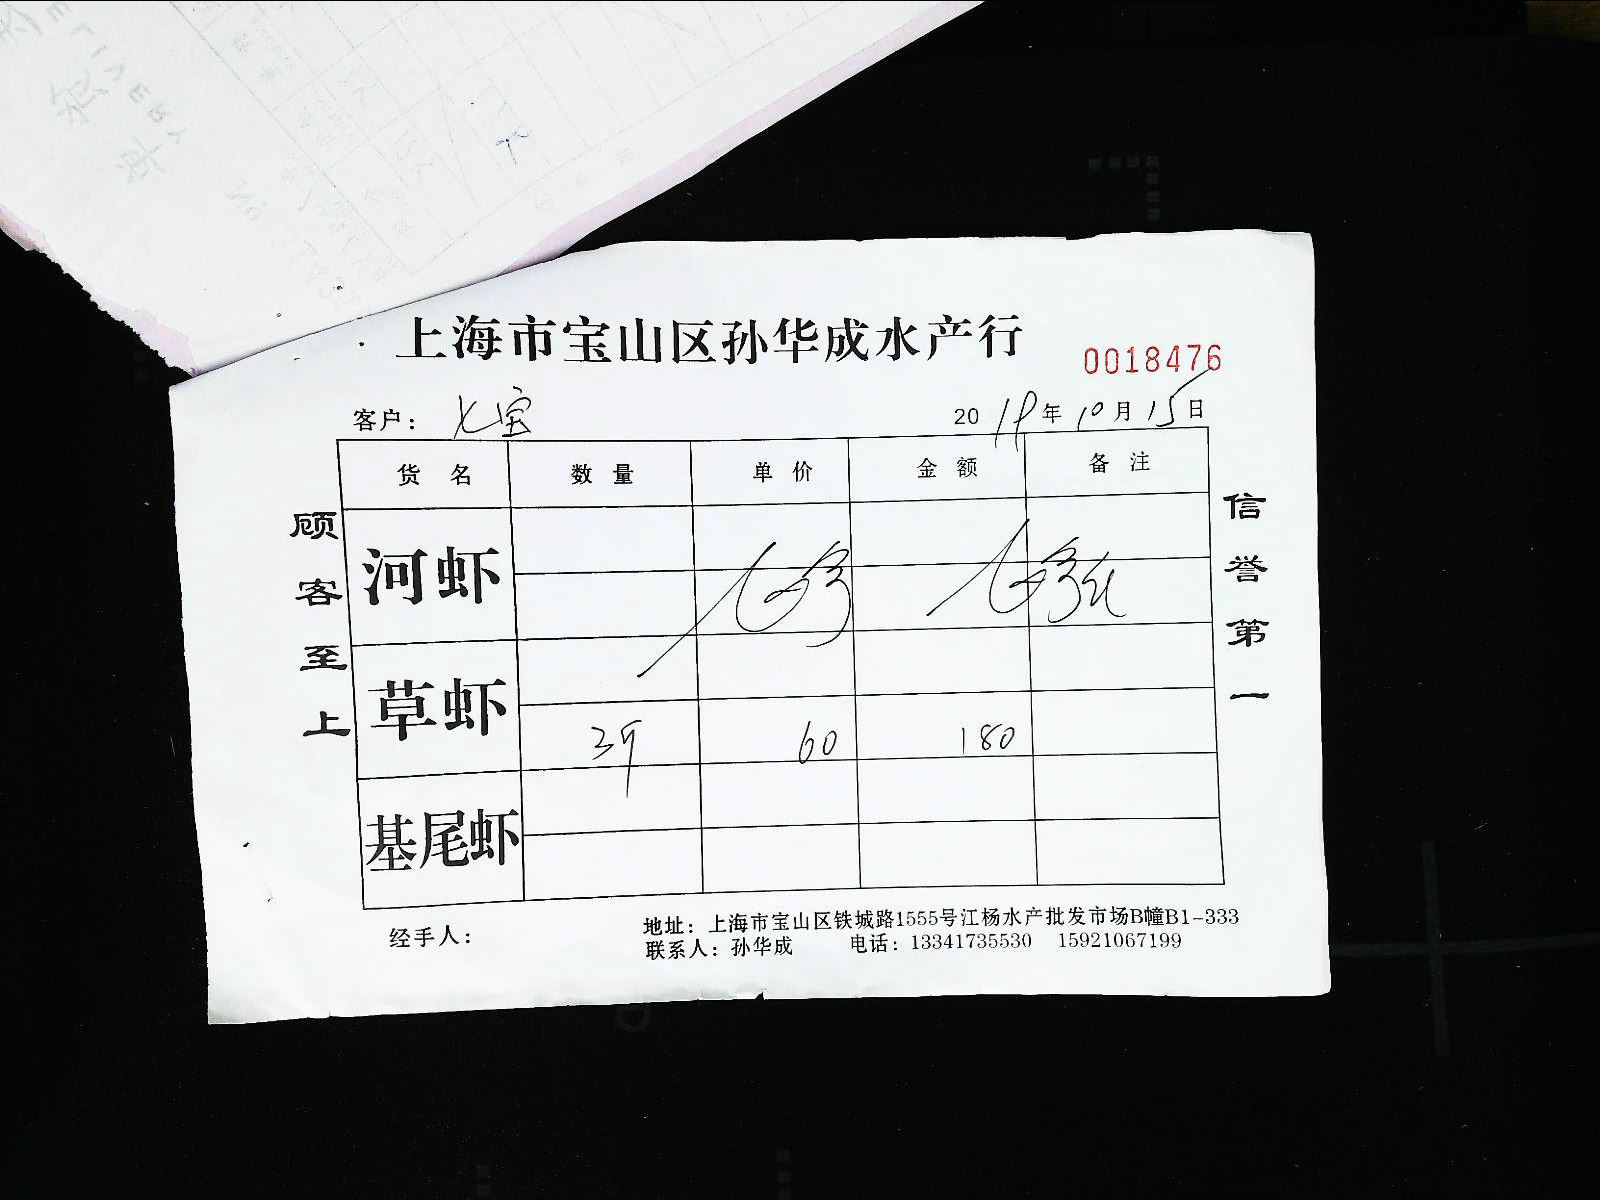 上海市宝山区孙华成水产行
0018476
客户： 七宝
2019年10月15日
货名 数量 单价 金额 备注
河虾
草虾
3斤 60 180
基尾虾
顾客至上
信誉第一
经手人：
地址：上海市宝山区铁城路1555号江杨水产批发市场B幢B1-333
联系人：孙华成 电话：13341735530 15921067199
DELIVERY
No.